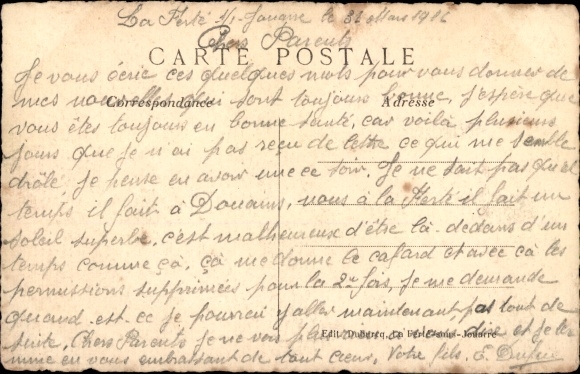 La Ferté s/s Jouarre le 31 Mars 1916
Chers Parents
CARTE POSTALE
Je vous écrie ces quelques mots pour vous donner de
mes nouvelles qui sont toujours bonne, j'espère que
Correspondance
Adresse
vous êtes toujours en bonne santé, car voilà plusieurs
jours que je n'ai pas reçu de lettre ce qui me semble
drôle, je pense en avoir une ce soir. Je ne sait pas quel
temps il fait à Douains, nous à la Ferté il fait un
soleil superbe, c'est malheureux d'être là-dedans d'un
temps comme ça, ça me donne le cafard et avec ça les
permissions supprimées pour la 2e fois, je me demande
quand est-ce je pourrai y aller maintenant pas tout de
suite. Chers Parents je ne vois plus rien à vous dire et je ter
Edit. La Ferté-sous-Jouarre
mine en vous embrassant de tout cœur, Votre fils, E.